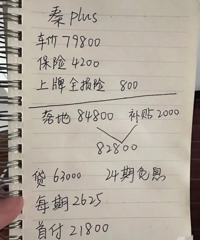 秦plus
车价 79800
保险 4200
上牌全损险 800
落地 84800 补贴2000
82800
贷 63000 24期免息
每期 2625
首付 21800